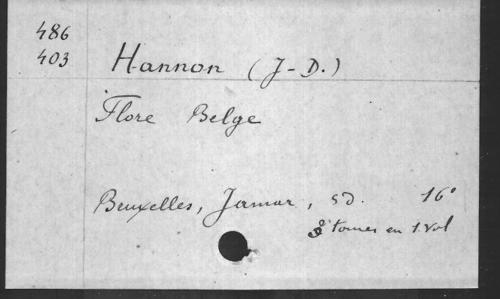 486
403
Hannon (J-D.)
Flore Belge
Bruxelles, Jamar, sd. 16°
3 tomes en 1 vol